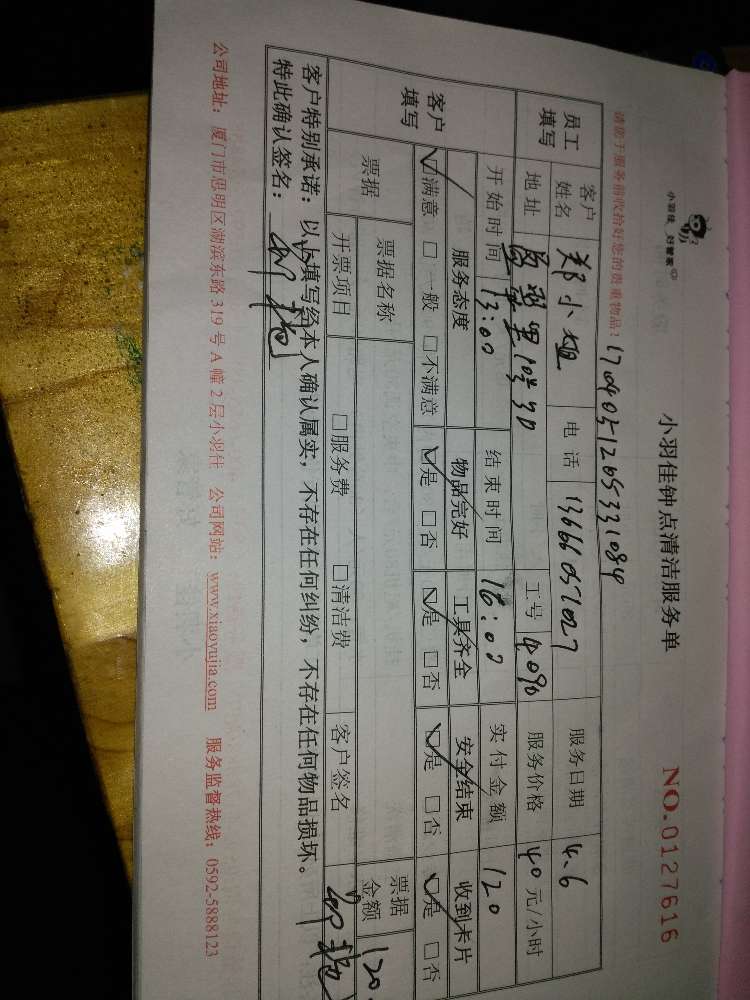 小羽佳 好管家
小羽佳钟点清洁服务单
NO.0127616
请您于服务前收拾好您的贵重物品!
员工填写
客户姓名 郑小姐 电话 13666051027 服务日期 4.6
地址 10号 工号 4090 服务价格 40元/小时
开始时间 13:00 结束时间 16:00 实付金额 120
客户填写
服务态度 物品完好 工具齐全 安全结束 收到卡片
☑满意 □一般 □不满意 ☑是 □否 ☑是 □否 ☑是 □否 ☑是 □否
票据 票据名称 票据金额 120
开票项目 □服务费 □清洁费 客户签名
客户特别承诺:以上填写经本人确认属实,不存在任何纠纷,不存在任何物品损坏。
特此确认签名:
公司地址:厦门市思明区湖滨东路319号A幢2层小羽佳 公司网站:www.xiaoyujia.com 服务监督热线:0592-5888123